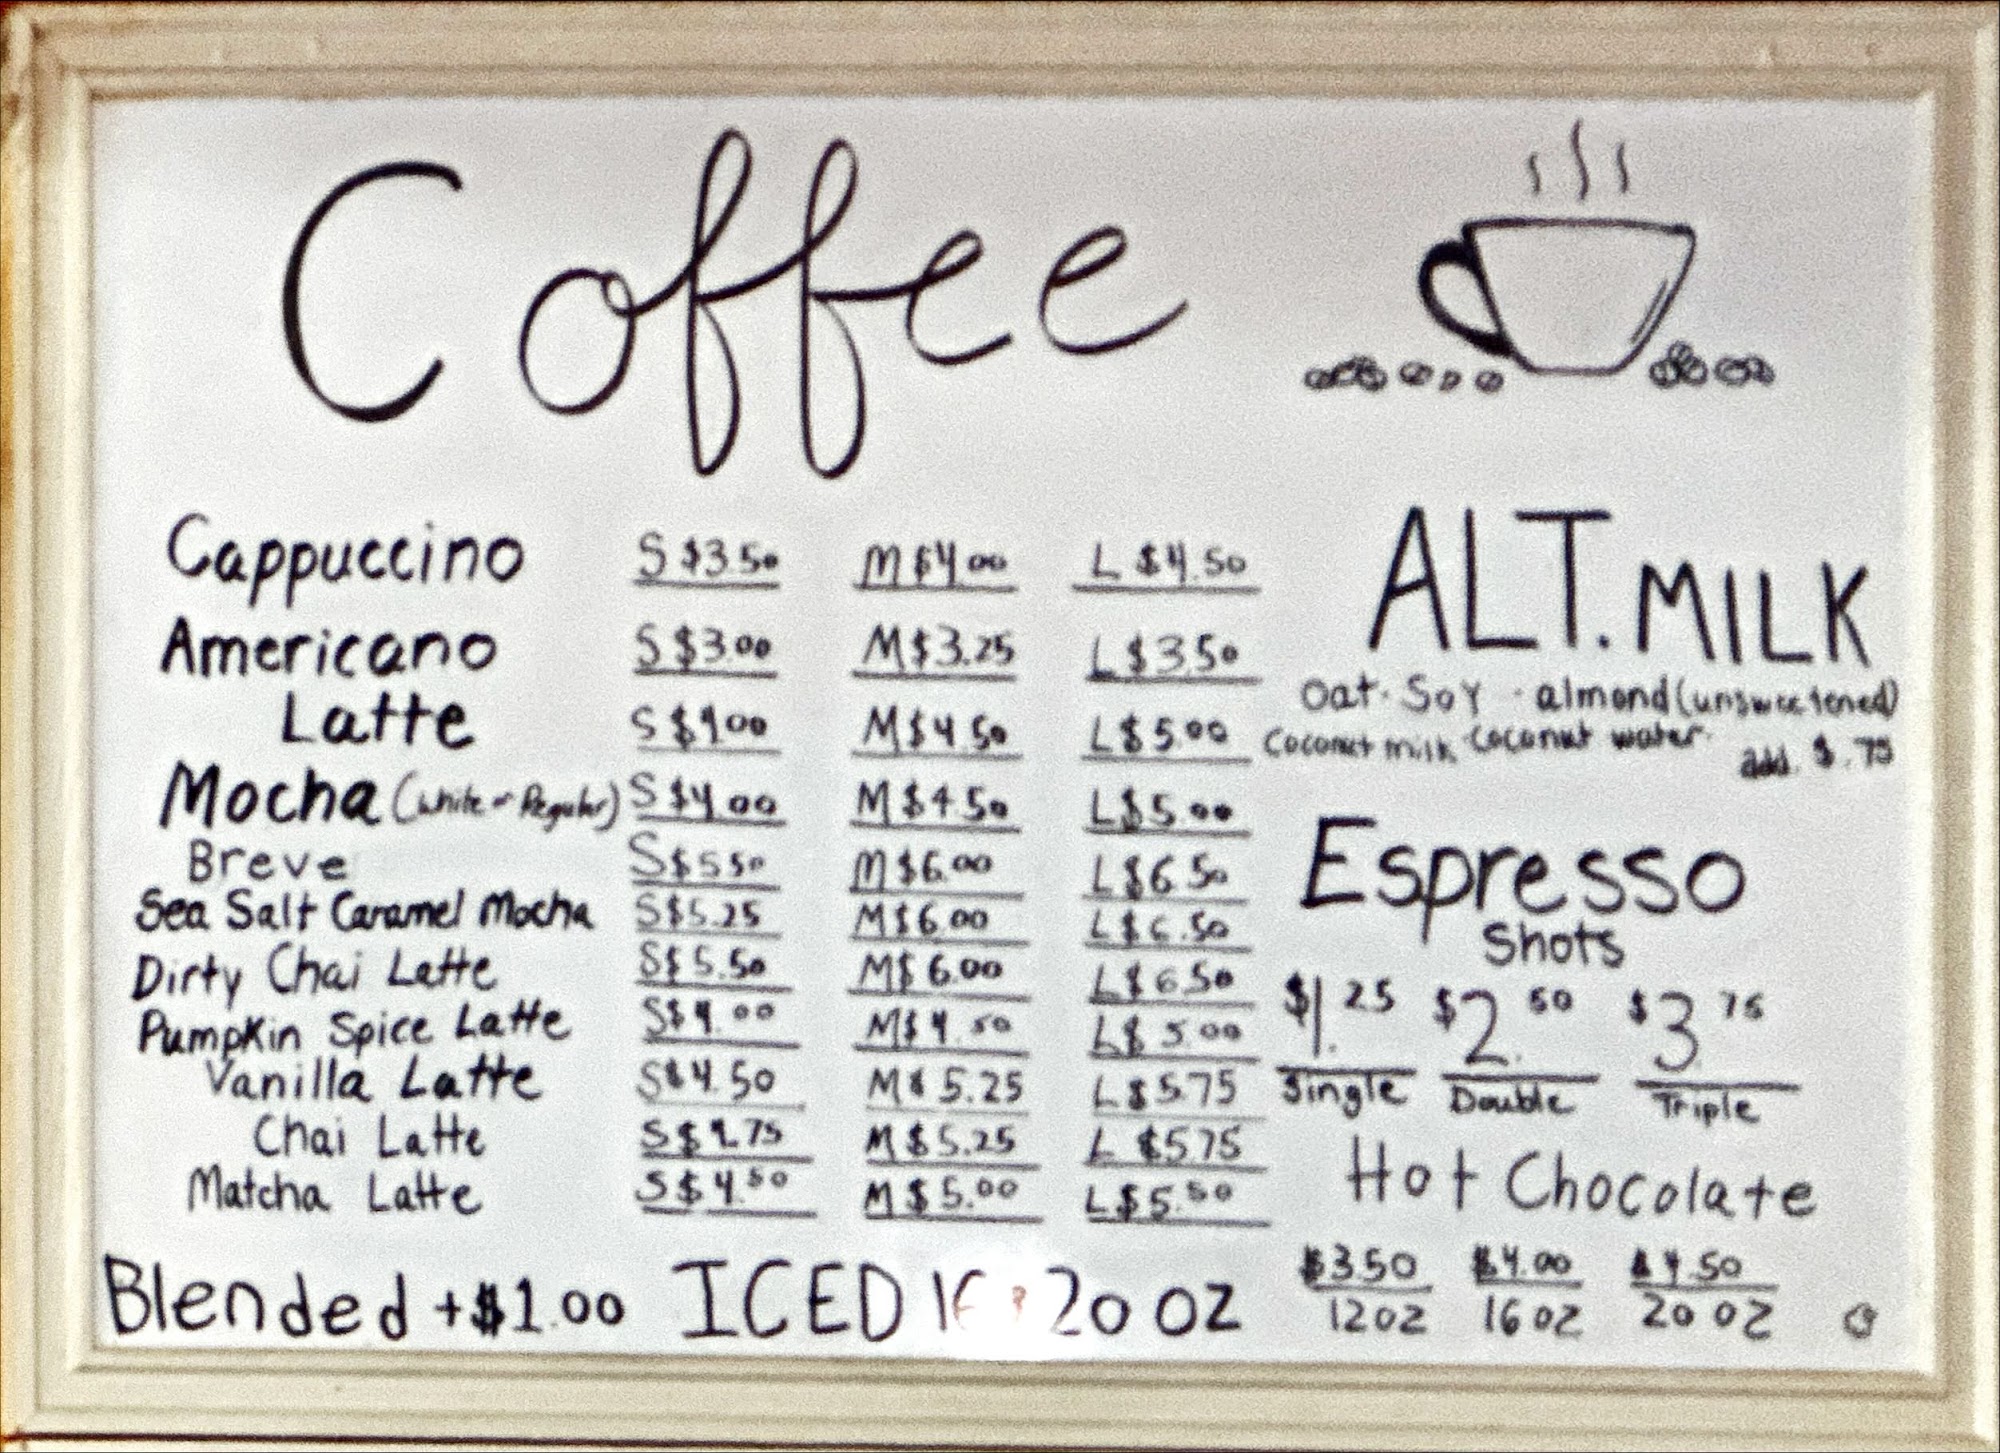 Coffee
Cappuccino S $3.50 M $4.00 L $4.50
Americano S $3.00 M $3.25 L $3.50
Latte S $4.00 M $4.50 L $5.00
Mocha (White or Regular) S $4.00 M $4.50 L $5.00
Breve S $5.50 M $6.00 L $6.50
Sea Salt Caramel Mocha S $5.25 M $6.00 L $6.50
Dirty Chai Latte S $5.50 M $6.00 L $6.50
Pumpkin Spice Latte S $4.00 M $4.50 L $5.00
Vanilla Latte S $4.50 M $5.25 L $5.75
Chai Latte S $4.75 M $5.25 L $5.75
Matcha Latte S $4.50 M $5.00 L $5.50
Blended +$1.00 ICED 20 oz
ALT. MILK
Oat · Soy · almond (unsweetened)
Coconut milk · Coconut water ·
add. $.75
Espresso
Shots
$1.25 $2.50 $3.75
Single Double Triple
Hot Chocolate
$3.50 $4.00 $4.50
12 oz 16 oz 20 oz